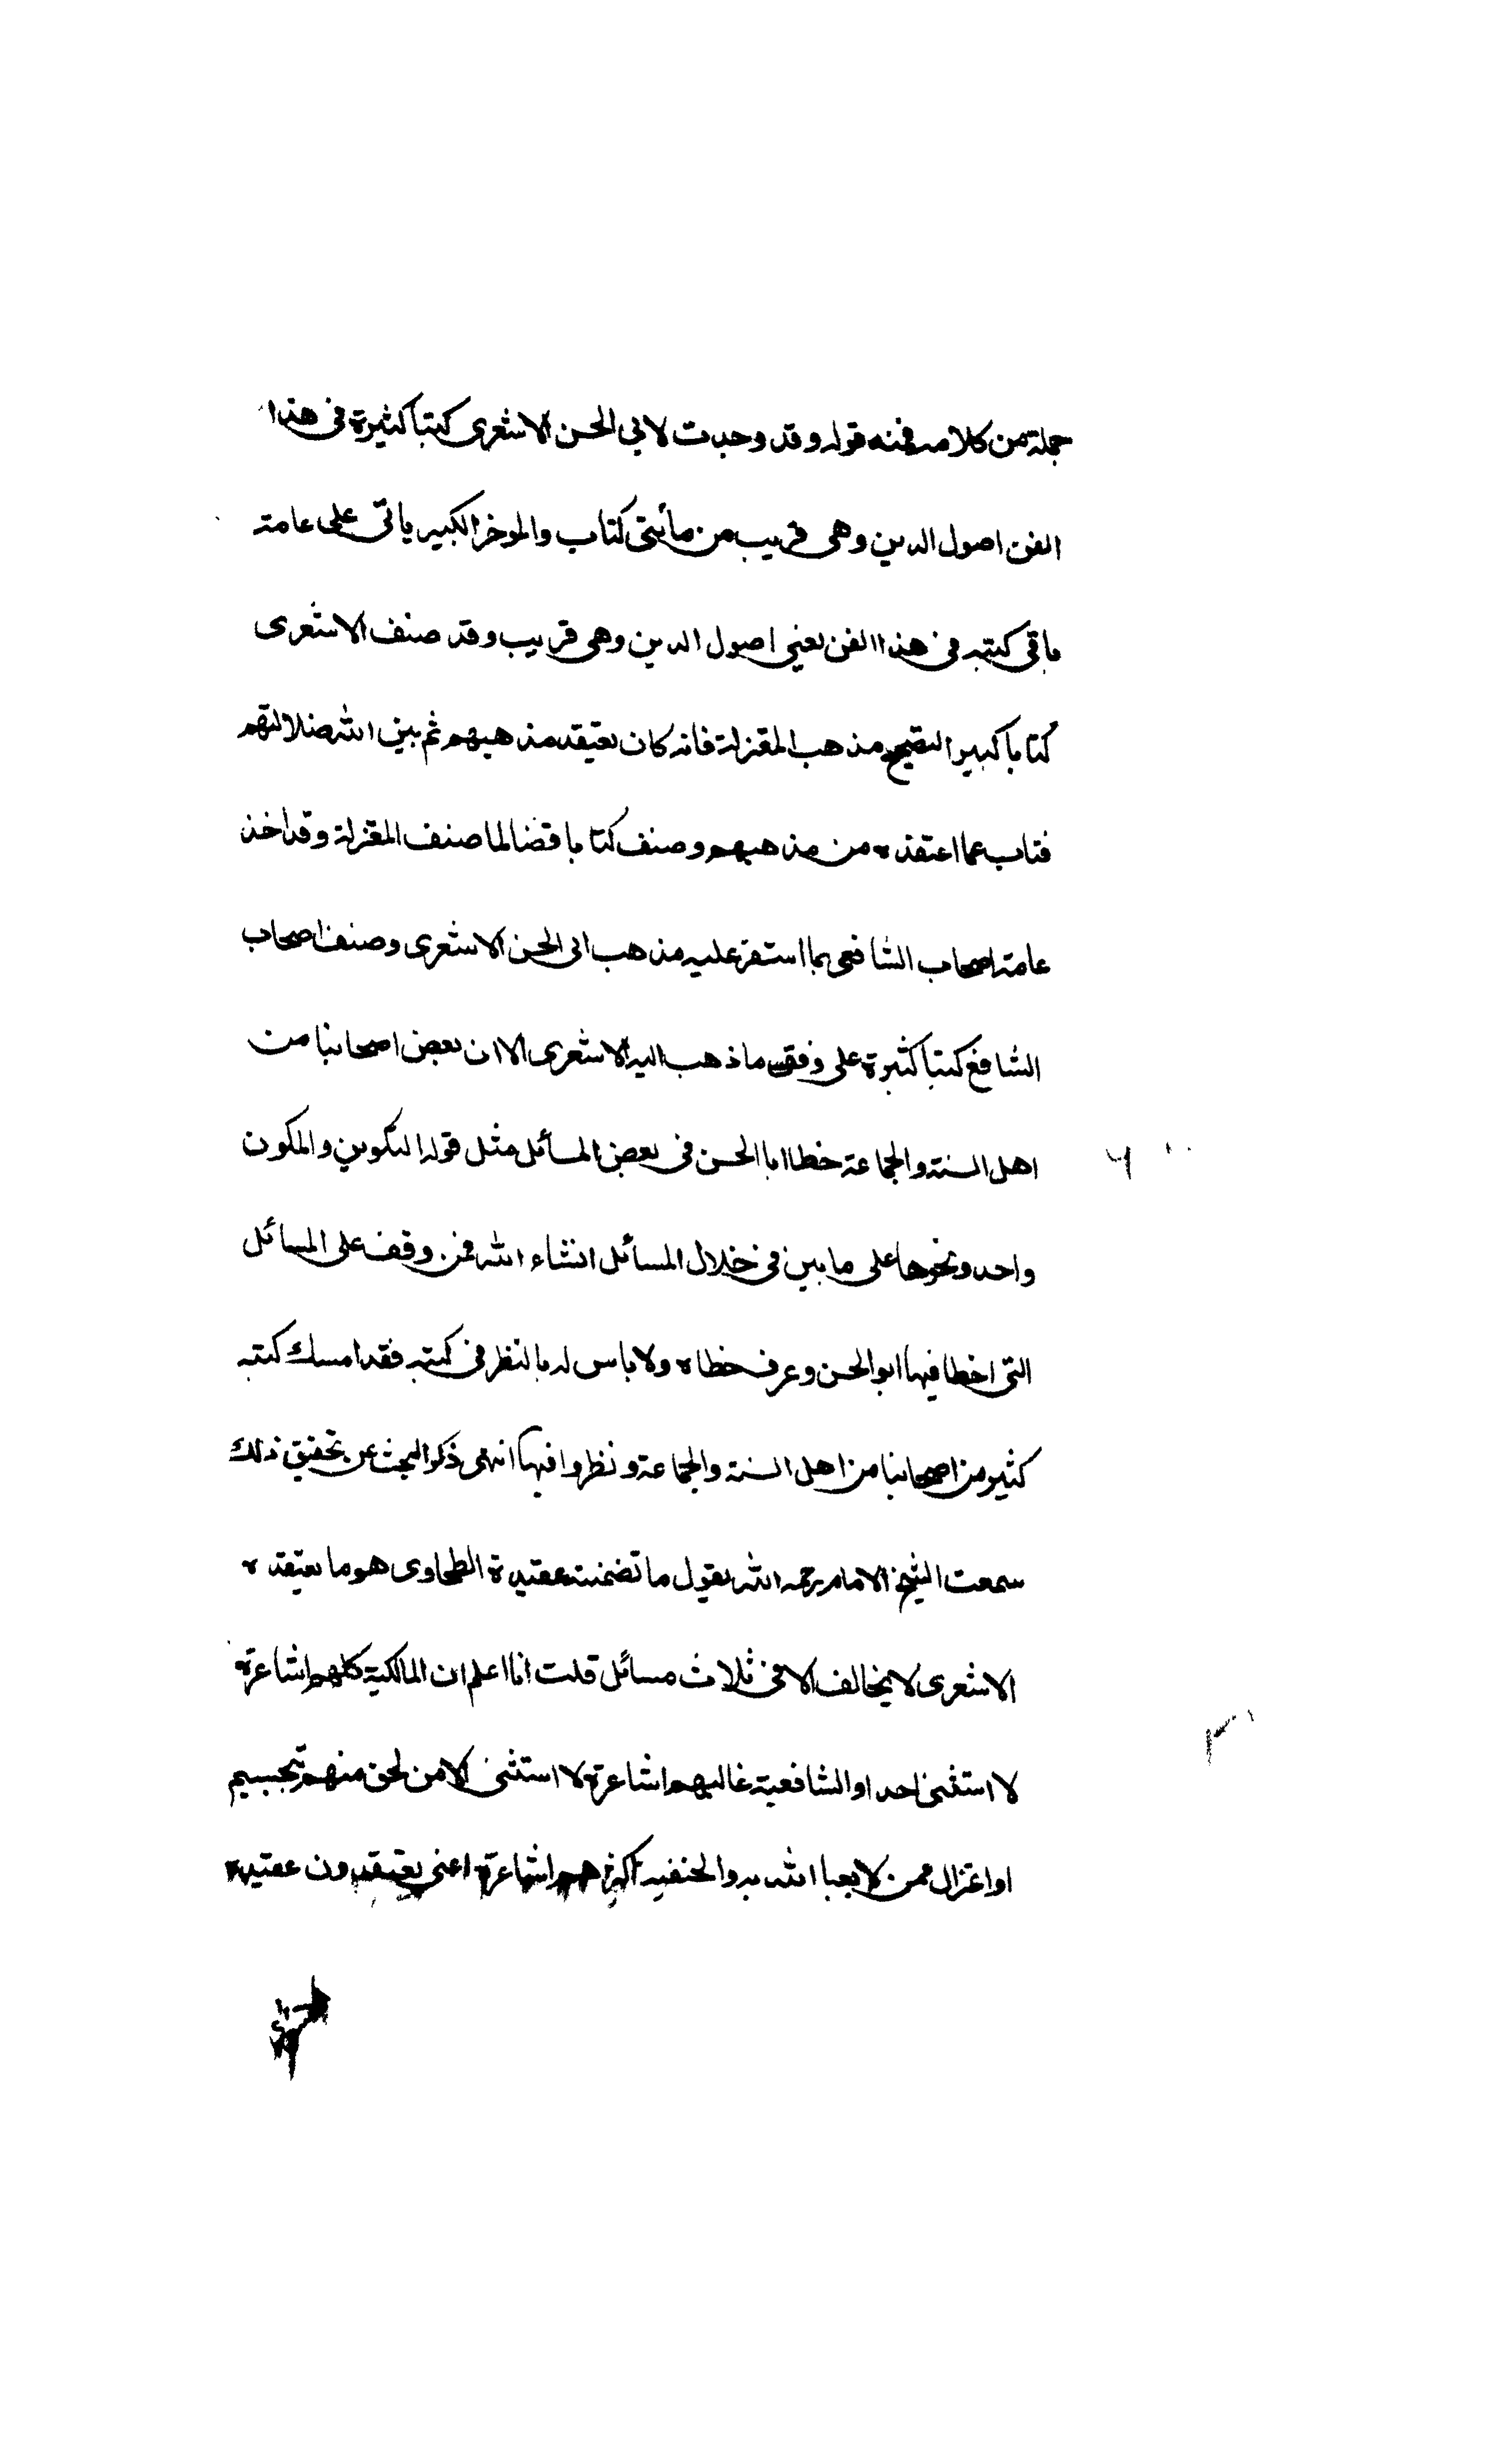 جملة من كلامه فمنه قوله وقد وجدت لابي الحسن الاشعرى كتبا كثيرة فى هذا
الفن اصول الدين وهى قريب من مائتى كتاب والموخر الكبير ياتى على عامة
باقى كتبه فى هذا الفن يعنى اصول الدين وهى قريب وقد صنف الاشعرى
كتابا كبيرا لتقبيح مذهب المقتزلة فانه كان يعتيقد مذهبهم ثم بين الله ضلالتهم
فتاب عما اعتقده من مذهبهم وصنف كتابا قضا لما صنف المقتزلة وقد اخذ
عامة اصحاب الشافعى بما استقر عليه مذهب ابى الحسن الاشعرى وصنف اصحاب
الشافع كتبا كثيرة على وفق ما ذهب اليه الاشعرى الا ان بعض اصحابنا من
اهل السنة والجماعة خطا ابا الحسن فى بعض المسائل مثل قوله التكوين والمكون
واحد ونحوها على ما بين فى خلال المسائل انشاء الله فمن وقف على المسائل
التى اخطا فيها ابو الحسن وعرف خطاه ولا باس له بالنظر فى كتبه فقد امسك كتبه
كثير من اصحابنا من اهل السنة والجماعة ونظروا فيها انهى ذكر البحث عن تحقيق ذلك
سمعت الشيخ الامام رحمه الله يقول ما تضمنته عقيدة الطحاوى هو ما يعتيقده
الاشعرى لا يخالف الا فى ثلاث مسائل قلت انا اعلم ان المالكية كلهم اشاعرة
لا استثنى احدا والشافعية غالبهم اشاعرة لا استثنى الا من لحق منهم تجسيم
او اعتزال ممن لا يعبا الله به والحنفيه اكثرهم اشاعرة اعنى يعتيقدون عقيدة